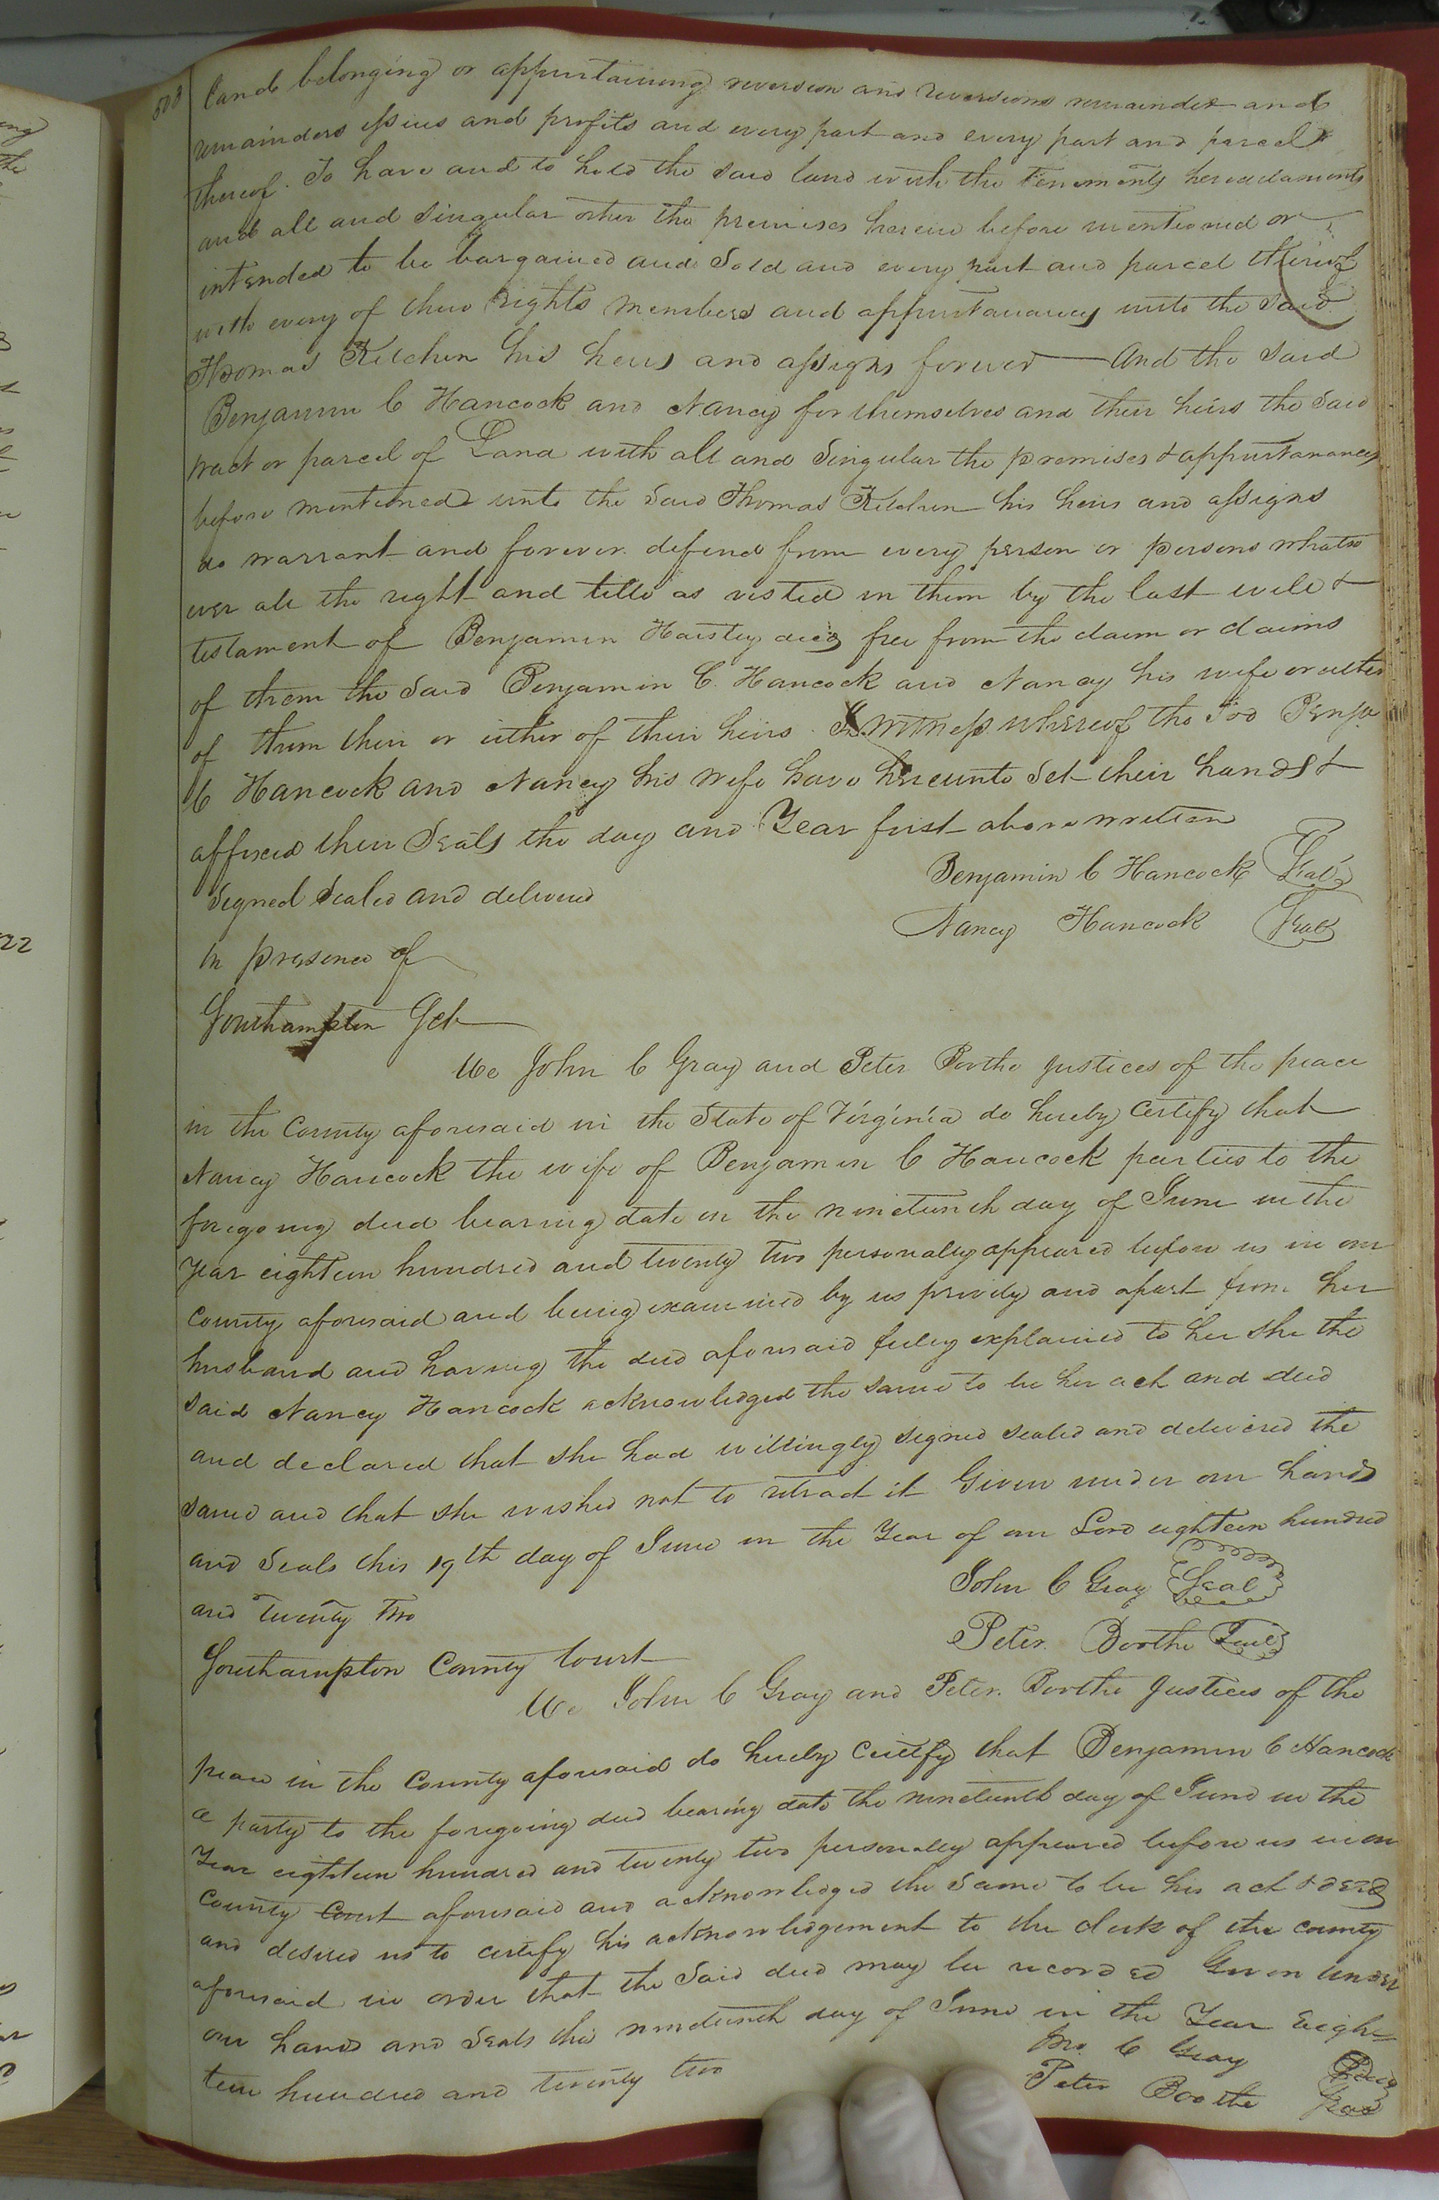 508
land belonging or appurtaining reversion and reversions remainder and
remainders issues and profits and every part and every part and parcel
thereof. To have and to hold the said land with the tenements heredaments
and all and singular other the premises herein before mentioned or
intended to be bargained and Sold and every part and parcel thereof
with every of their rights members and appurtanances unto the said
Thomas Kitchen his heirs and assigns forever — And the said
Benjamin C Hancock and Nancy for themselves and their heirs the said
tract or parcel of Land with all and Singular the premises & appurtanances
before mentioned unto the said Thomas Kitchen his heirs and assigns
do warrant and forever defend from every person or persons whatso
ever all the right and title as vested in them by the last will &
testament of Benjamin decd free from the claim or claims
of them the Said Benjamin C. Hancock and Nancy his wife or either
of them their or either of their heirs In witness whereof the Sd Benja
C Hancock and Nancy his wife have hereunto Set their hands &
affixed their Seals the day and Year first above written
Benjamin C Hancock Seal
Signed Sealed and delivered
Nancy Hancock Seal
in presence of
Southampton Sct
We John C Gray and Peter Boothe Justices of the peace
in the County aforesaid in the State of Virginia do hereby Certify that
Nancy Hancock the wife of Benjamin C Hancock parties to the
foregoing deed bearing date on the nineteenth day of June in the
Year eighteen hundred and twenty two personally appeared before us in our
County aforesaid and being examined by us privily and apart from her
husband and having the deed aforesaid fully explained to her She the
said Nancy Hancock acknowledged the same to be her act and deed
and declared that she had willingly signed sealed and delivered the
same and that she wished not to retract it Given under our hands
and Seals this 19th day of June in the Year of our Lord eighteen hundred
and Twenty Two
John C Gray Seal
Peter Boothe Seal
Southampton County Court
We John C Gray and Peter Boothe Justices of the
peace in the County aforesaid do hereby Certify that Benjamin C Hancock
a party to the foregoing deed bearing date the nineteenth day of June in the
Year eighteen hundred and twenty two personally appeared before us in our
County Court aforesaid and acknowledged the Same to be his act & deed
and desired us to certify his acknowledgement to the clerk of the county
aforesaid in order that the Said deed may be recorded Given under
our hands and Seals this nineteenth day of June in the Year Eigh
teen hundred and twenty two
Jno. C Gray Seal
Peter Boothe Seal